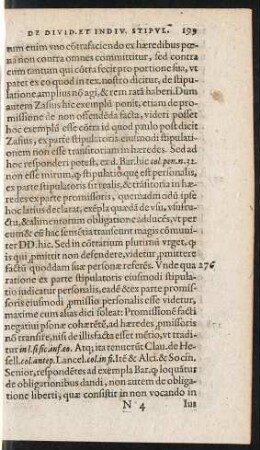 DE DIVID. ET INDIV. STIPVL. 199
num enim vno cōtrafaciendo ex hæredibus pœ-
na non contra omnes committitur, sed contra
eum tantum qui cōtra fecit pro portione sua, vt
paret ex eo quod in tex. nostro dicitur, de stipu-
latione amplius nō agi, & rem ratā haberi. Dum
autem Zasius hic exemplū ponit, etiam de pro-
missione de non offendēda facta, videri posset
hoc exemplū esse cōtra id quod paulo post dicit
Zasius, ex parte stipulatoris eiusmodi stipulati-
onem non esse transitoriam in hæredes. Sed ad
hoc responderi potest, ex d. Bar. hic col. pen. n. 32.
non esse mirum, q̃ stipulatio quę est personalis,
ex parte stipulatoris sit realis, & trāsitoria in hæ-
redes ex parte promissoris, quēadmodū ipse
hoc latius declarat, exēpla quædā de vsu, vsufru-
ctu, & alimentorum obligatione adducēs, vt pe-
cum & cū hac sentētia transeunt magis cōmuni-
ter DD. hic. Sed in cōtrarium plutimū vrget, q̃
is qui ꝓmittit non defendere, videtur, ꝓmittere
factū quoddam suæ personæ referēs. Vnde qua 276
ratione ex parte stipulatoris eiusmodi stipula-
tio iudicatur personalis, eadē & ex parte promis-
soris eiusmodi ꝓmissio personalis esse videtur,
maxime cum alias dici soleat: Promissionē facti
negatiui psonæ cohęrētē, ad hæredes ꝓmissoris
nō transire, nisi de illis facta esset mētio, vt tradi-
tur in l. si sic. inf. eo. Atq; ita tenuerūt Clau. de He-
sell. col. antep. Lancel. col. in fi. Itē & Alci. & Socin.
Senior, respondētes ad exempla Bar. q̃ loquūtur
de obligationibus dandi, non autem de obliga-
tione liberti, quæ consistit in non vocando in
N 4 Ius